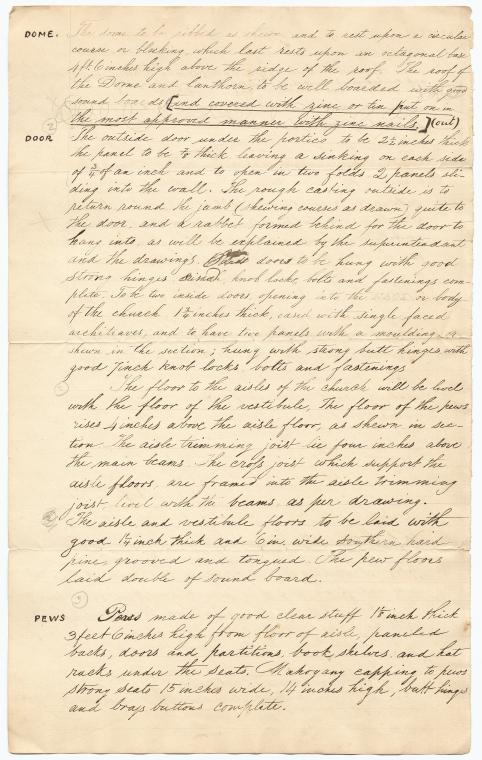 DOME. The dome to be ribbed as shewn and to rest upon a circular
course or blocking, which last rests upon an octagonal base
4 ft. 6 inches high above the ridge of the roof. The roof of
the Dome and lanthorn, to be well boarded with good
sound boards [and covered with zinc or tin put on in
the most approved manner with zinc nails.] (out)
DOOR The outside door under the portico to be 2½ inches thick
the panel to be ⅞ thick leaving a sinking on each side
of ¾ of an inch and to open in two folds 2 panels sli-
ding into the wall. The rough casting outside is to
return round the jamb (shewing courses as drawn) quite to
the door, and a rabbet formed behind for the door to
hang into, as will be explained by the superintendant
and the drawings. doors to be hung with good
strong hinges knob locks, bolts and fastenings com-
plete. To be two inside doors, opening into the or body
of the church 1¾ inches thick, cased with single faced
architraves, and to have two panels with a moulding as
shewn in the section; hung with strong butt hinges with
good 7 inch knob locks bolts and fastenings
The floor to the aisles of the church will be level
with the floor of the vestibule, The floor of the pews
rises 4 inches above the aisle floor, as shewn in sec-
tion. The aisle trimming joist lie four inches above
the main beams. The cross joist which support the
aisle floors, are framed into the aisle trimming
joist, level with the beams as per drawing.
The aisle and vestibule floors to be laid with
good 1¼ inch thick and 6 in. wide Southern hard
pine grooved and tongued. The pew floors
laid double of sound board.
PEWS Pews made of good clear stuff inch thick
3 feet 6 inches high from floor of aisle, paneled
backs, doors and partitions, book shelves and hat
racks under the seats. Mahogany capping to pews
strong seats 15 inches wide, 14 inches high, butt hinges
and brass buttons complete.